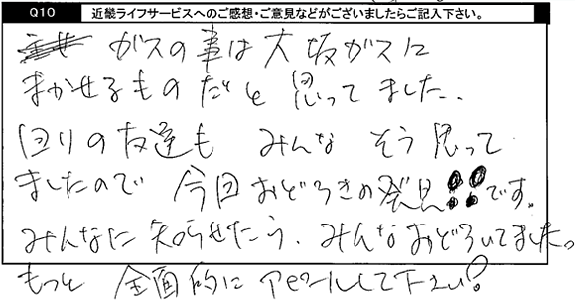 Q10 近畿ライフサービスへのご感想・ご意見などがございましたらご記入下さい。
ガスの事は大坂ガスに
まかせるものだと思ってました..
回りの友達も みんな そう思って
ましたので 今回おどろきの発見!!です.
みんなに知らせたら.みんなおどろいてました。
もっと 全面的にアピールして下さい?